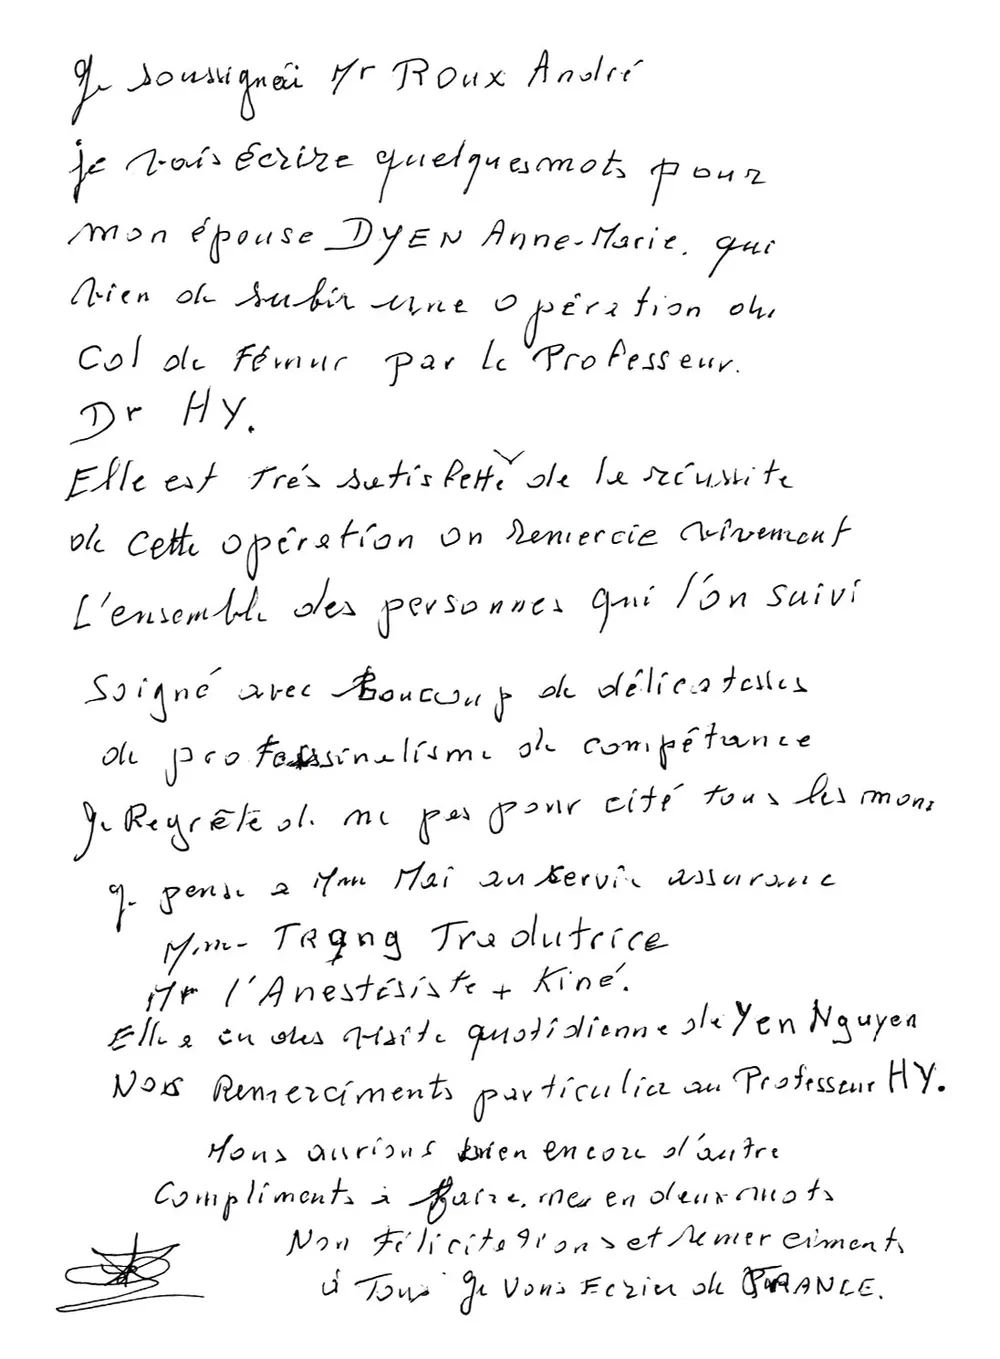 Je soussignéi Mr Roux André
je vais écrire quelques mots pour
mon épouse DYEN Anne-Marie. qui
vien de subir une opération du
Col de Fémur par le Professeur.
Dr HY.
Elle est très satisfette de la réussite
de cette opération on remercie vivement
L'ensemble des personnes qui l'on suivi
Soigné avec Boucoup de délicatesses
de professinalisme de compétance
Je Regrète de ne pas pour cité tous les noms
je pense a Mme Mai au servic assurance
Mme Trang Tradutrice
Mr l'Anestésiste + Kiné.
Elle a eu des visite quotidienne de Yen Nguyen
Nos Remerciments particulier au Professeur HY.
Nous aurions bien encore d'autre
Compliments à faire. mes en deux mots
Non Félicitations et remerciments
à Tous Je Vous Ecrier de FRANCE.